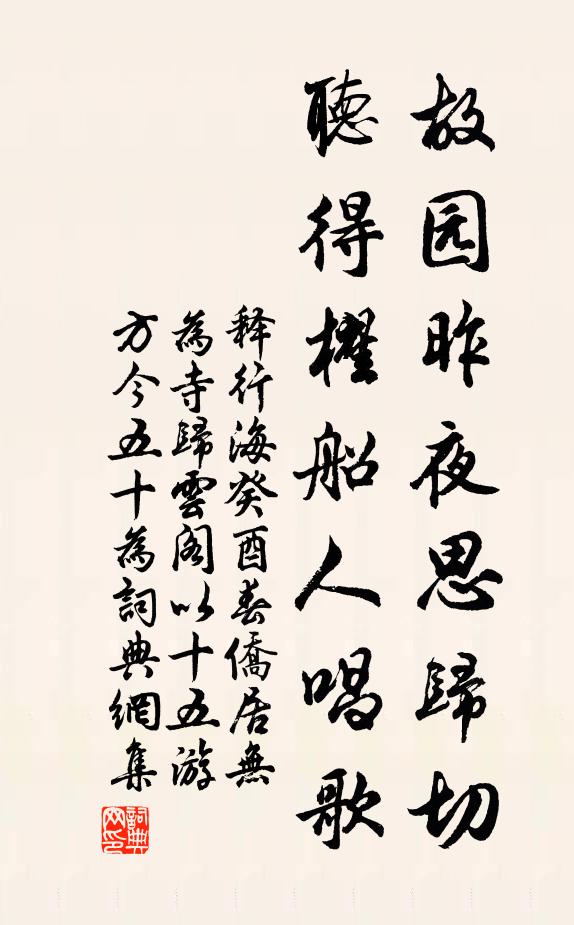 故园昨夜思歸切
聽得櫂船人唱歌
释行海癸酉春僑居無
為寺歸雲阁以十五游
方今五十為詞典網集
詞典网印